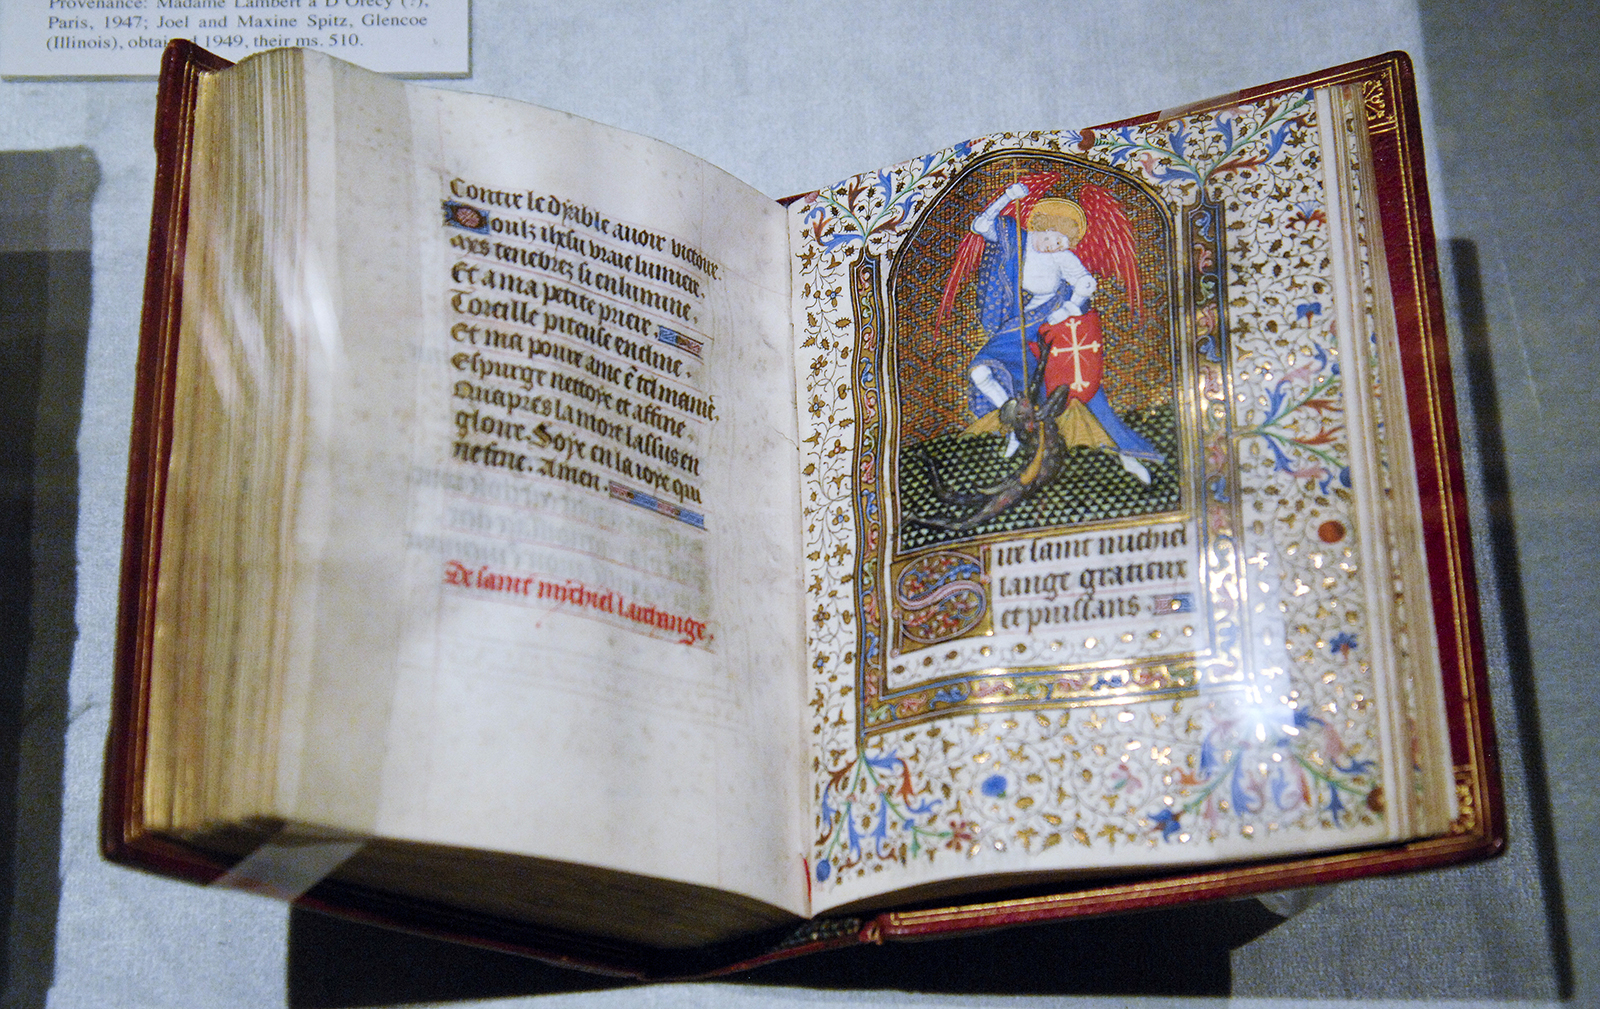 Provenance: Madame Lambert à D'Orecy (?),
Paris, 1947; Joel and Maxine Spitz, Glencoe
(Illinois), obtained 1949, their ms. 510.
Contre le dyable avoir victoire.
Doulz ihesu vraie lumiere.
Mes tenebrez si enlumine.
Et a ma petite priere.
Toreille piteuse encline.
Et ma povre ame ē tel maniē.
Espurge nettoye et affine.
Quapres la mort lassus en
gloire. Soye en la ioye qui
ne fine. Amen.
De saint michiel larchange.
Sire saint michiel
lange gratieux
et puissans